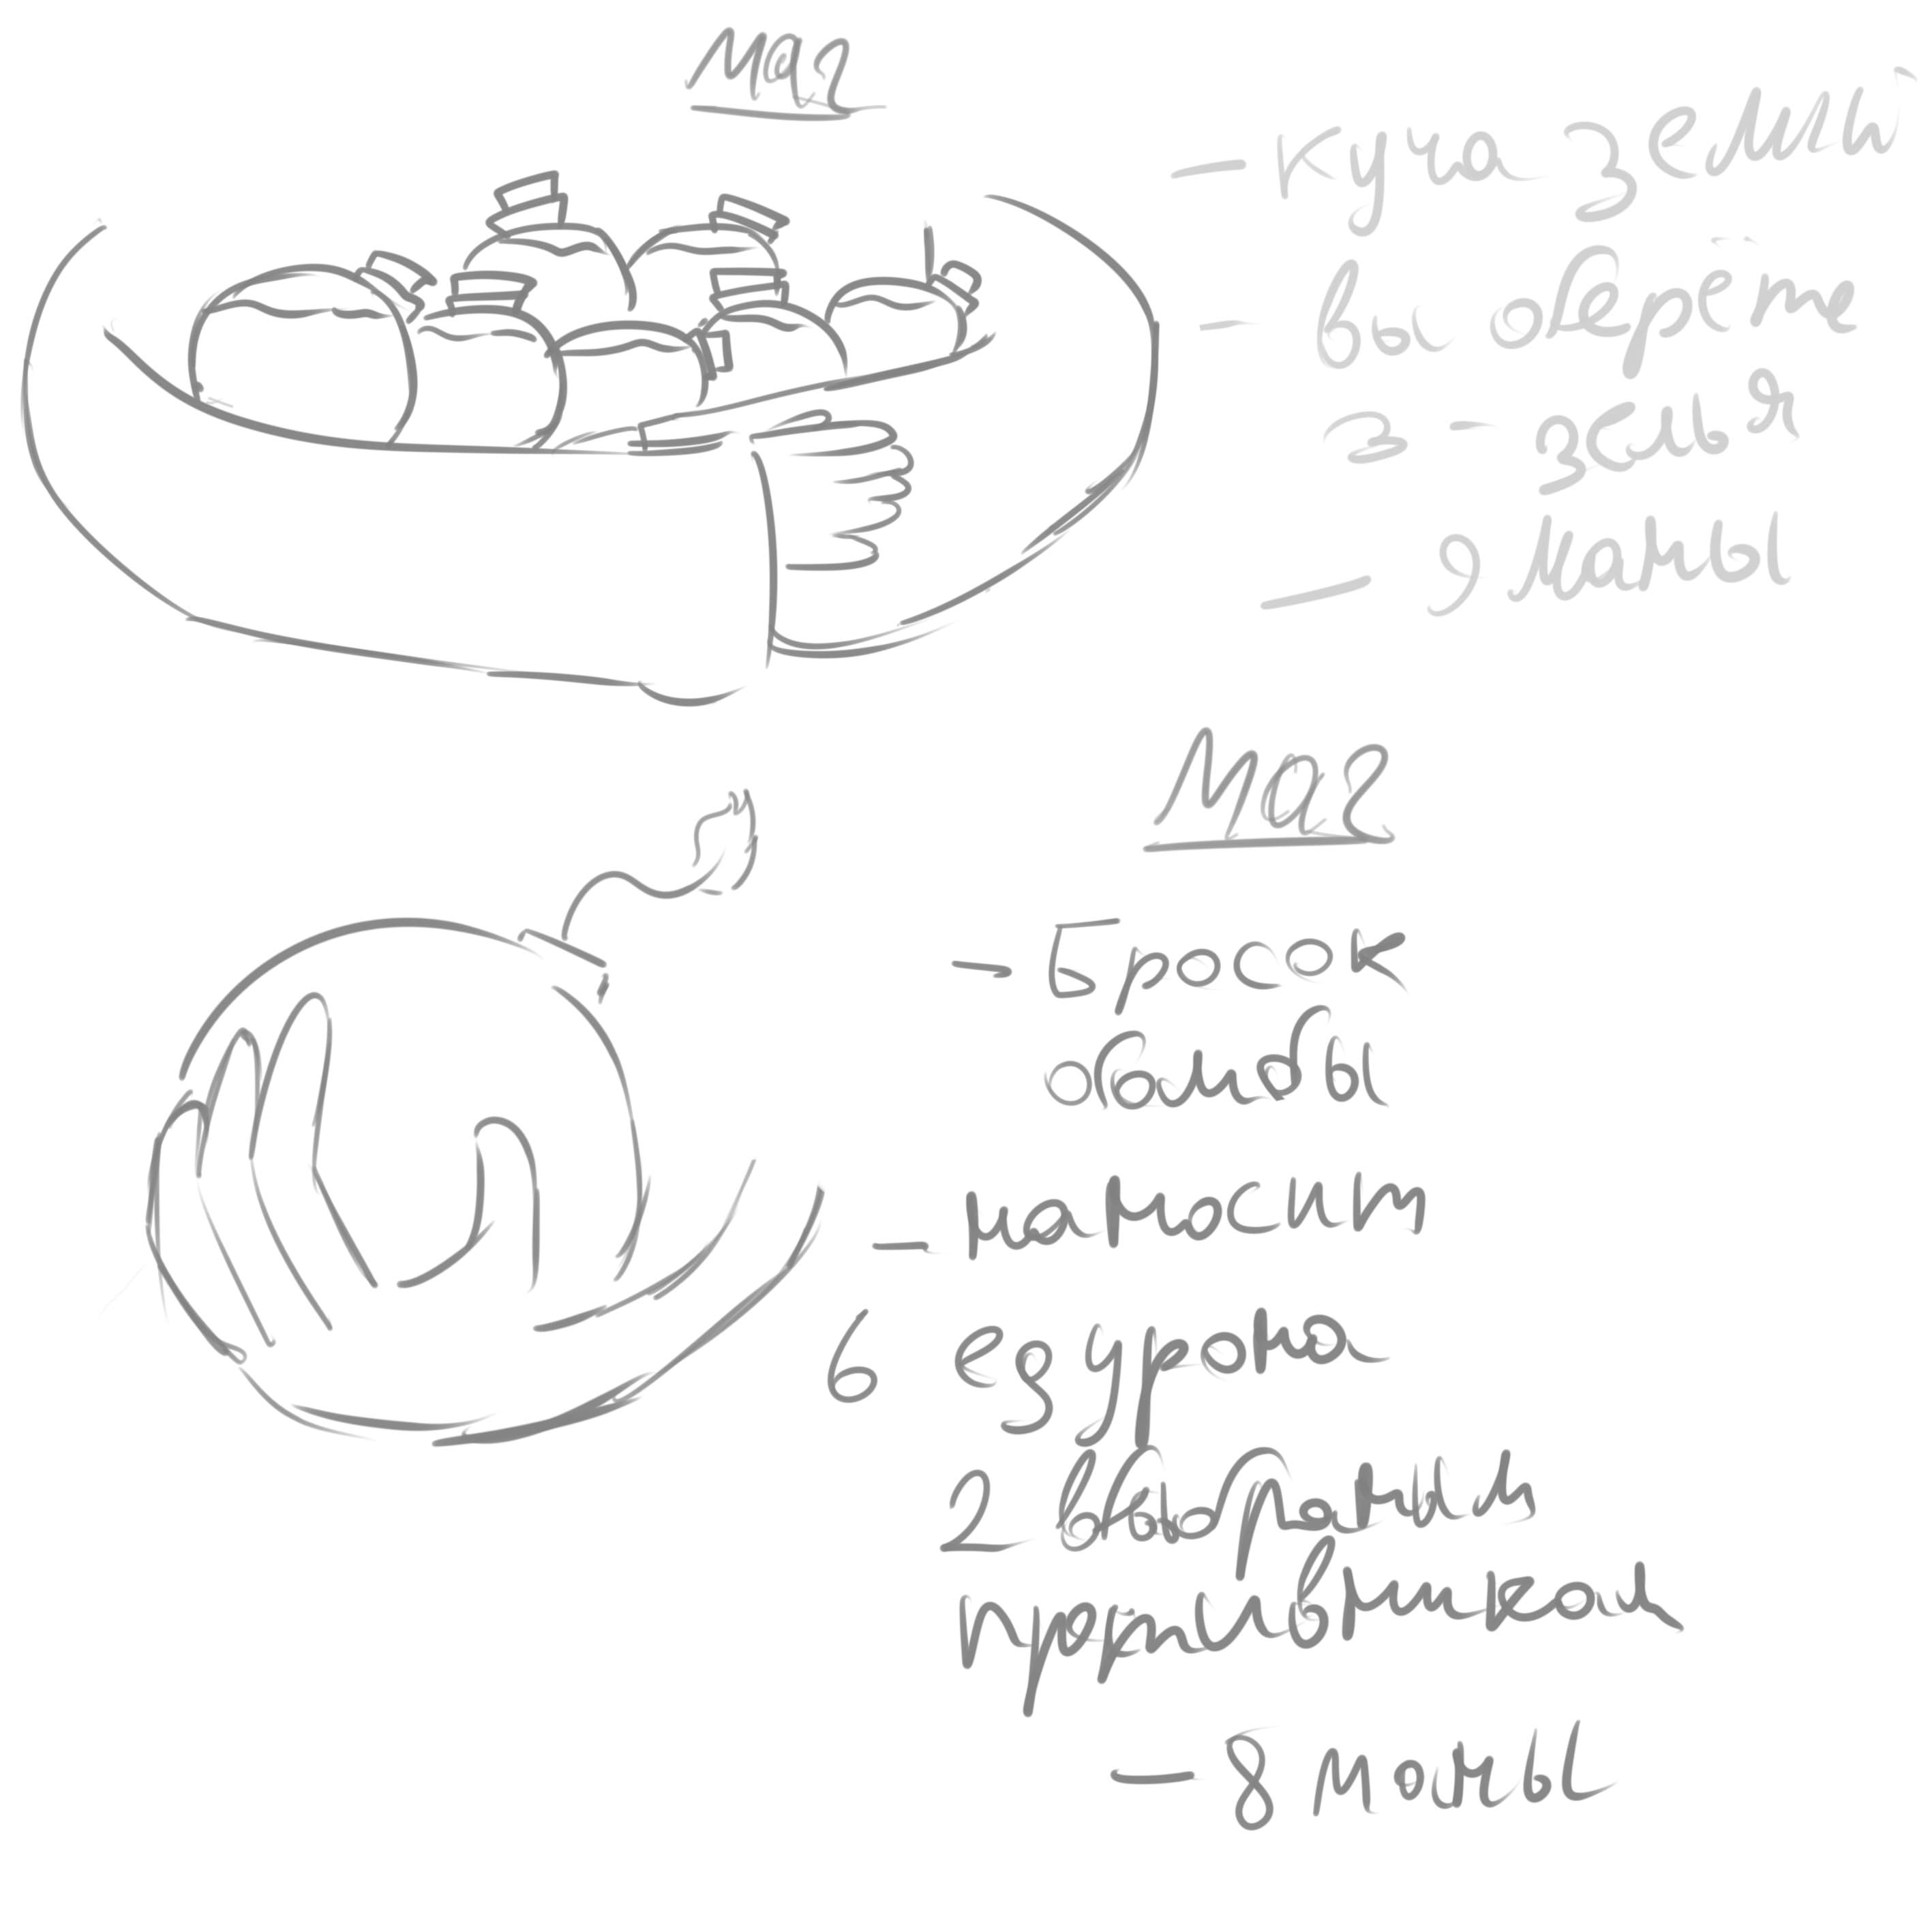 маг
- куча зелий
- вы берёте
3 - зелья
- 9 маны
маг
- Бросок
бомбы
- наносит
6 ед урона
2 выбраным
противникам
- 8 маны